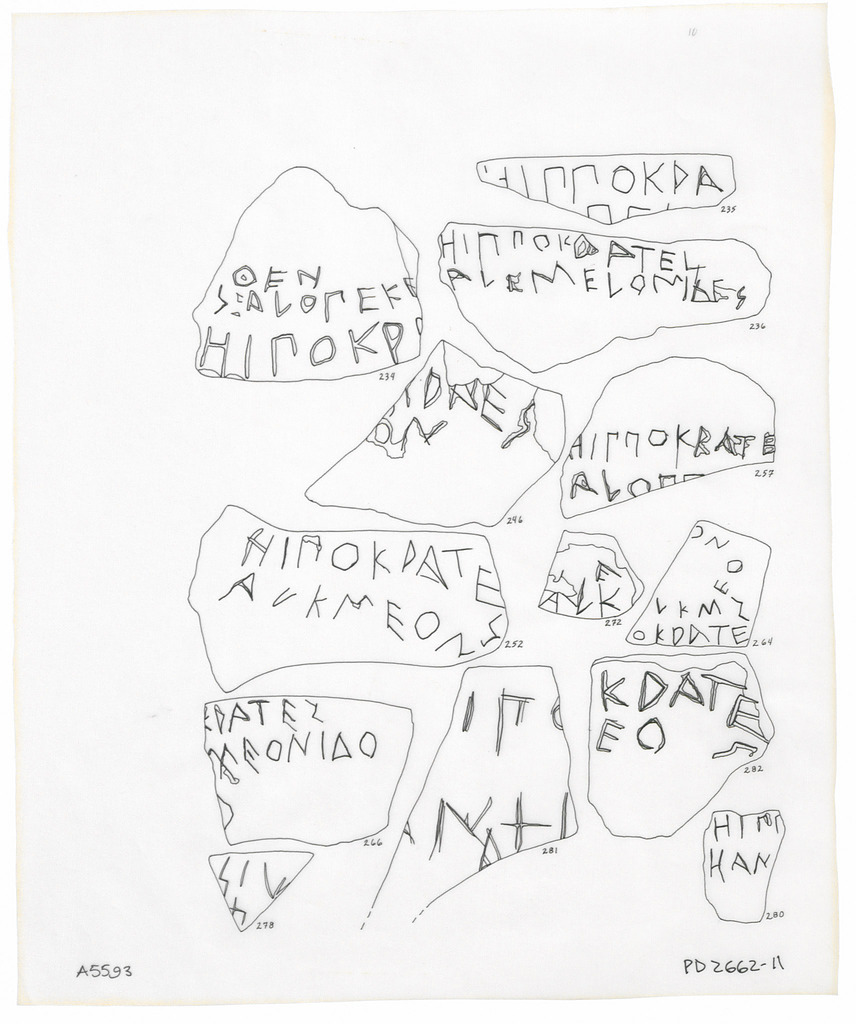 10
ΗΙΠΠΟΚΡΑ
235
ΗΙΠΠΟΚΡΑΤΕ
ΑLΚΜΕΟΝΙΔΕΣ
236
ΘΕΝ
Σ:ΑLΟΠΕΚΕ
ΗΙΠΟΚΡ
239
ΟΝ
246
ΗΙΠΠΟΚΡΑΤΕ
ΑLΟΠ
257
ΗΙΠΟΚΡΑΤΕ
ΑLΚΜΕΟΝΣ
252
Ε
ΑLΚ
272
ΟΝΟΕ
LΚΜΣ
ΟΚΡΑΤΕ
264
ΚΡΑΤΕΣ
ΜΕΟΝΙΔΟ
266
ΙΠ
ΑΝ
281
ΚΡΑΤΕΣ
ΕΟ
282
ΣΙL
278
ΗΙΠΠ
ΗΑΝ
280
A5593
PD2662-11